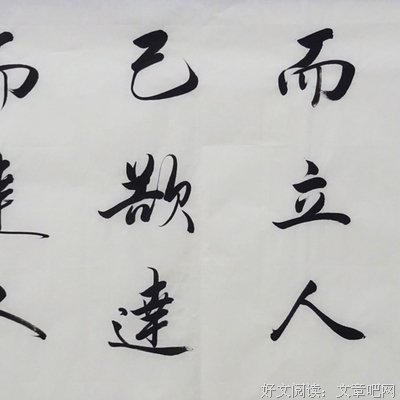 而立人
己欲達
而達人
好文阅读：文章吧网